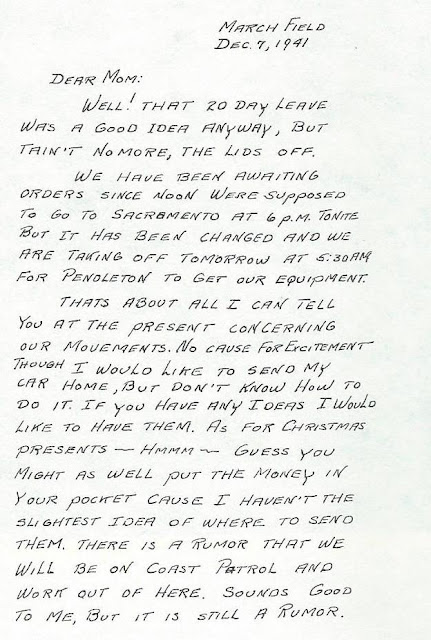 MARCH FIELD
DEC. 7, 1941
DEAR MOM:
WELL! THAT 20 DAY LEAVE
WAS A GOOD IDEA ANYWAY, BUT
TAIN'T NO MORE, THE LIDS OFF.
WE HAVE BEEN AWAITING
ORDERS SINCE NOON WERE SUPPOSED
TO GO TO SACROMENTO AT 6 P.M. TONITE
BUT IT HAS BEEN CHANGED AND WE
ARE TAKING OFF TOMORROW AT 5:30 AM
FOR PENDLETON TO GET OUR EQUIPMENT.
THATS ABOUT ALL I CAN TELL
YOU AT THE PRESENT CONCERNING
OUR MOVEMENTS. NO CAUSE FOR EXCITEMENT
THOUGH I WOULD LIKE TO SEND MY
CAR HOME, BUT DON'T KNOW HOW TO
DO IT. IF YOU HAVE ANY IDEAS I WOULD
LIKE TO HAVE THEM. AS FOR CHRISTMAS
PRESENTS ~ HMMM ~ GUESS YOU
MIGHT AS WELL PUT THE MONEY IN
YOUR POCKET CAUSE I HAVEN'T THE
SLIGHTEST IDEA OF WHERE TO SEND
THEM. THERE IS A RUMOR THAT WE
WILL BE ON COAST PATROL AND
WORK OUT OF HERE. SOUNDS GOOD
TO ME, BUT IT IS STILL A RUMOR.